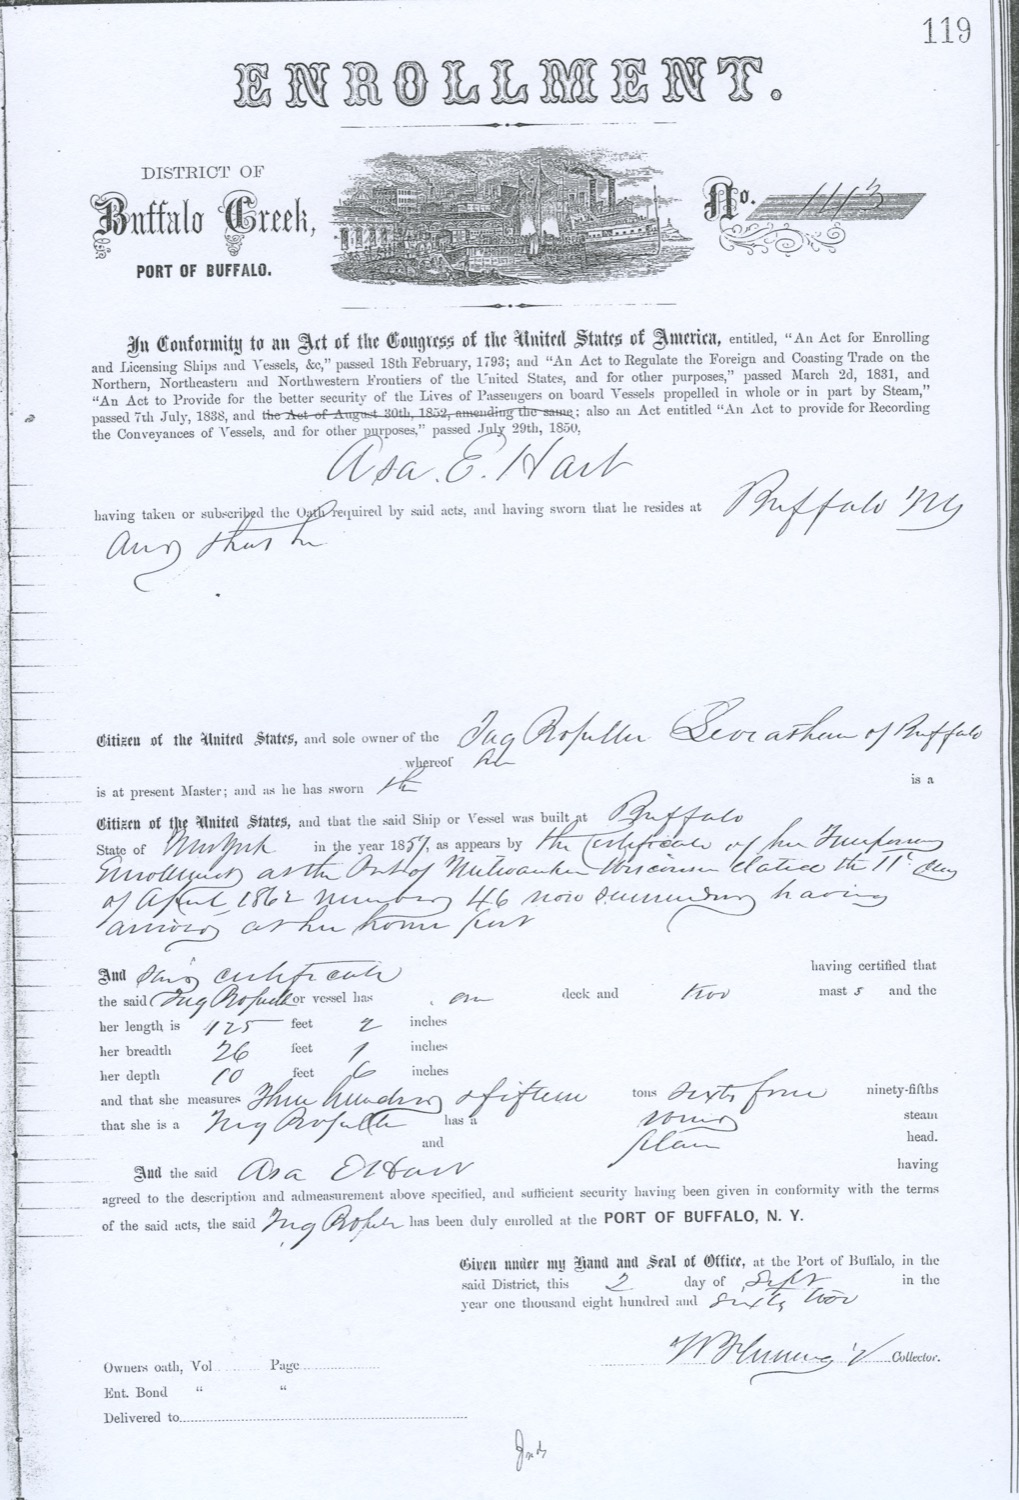 119
ENROLLMENT.
DISTRICT OF
Buffalo Creek,
PORT OF BUFFALO.
No. 1113
In Conformity to an Act of the Congress of the United States of America, entitled, “An Act for Enrolling
and Licensing Ships and Vessels, &c,” passed 18th February, 1793; and “An Act to Regulate the Foreign and Coasting Trade on the
Northern, Northeastern and Northwestern Frontiers of the United States, and for other purposes,” passed March 2d, 1831, and
“An Act to Provide for the better security of the Lives of Passengers on board Vessels propelled in whole or in part by Steam,”
passed 7th July, 1838, and the Act of August 30th, 1852, amending the same; also an Act entitled “An Act to provide for Recording
the Conveyances of Vessels, and for other purposes,” passed July 29th, 1850,
Asa. E. Hart
having taken or subscribed the Oath required by said acts, and having sworn that he resides at Buffalo NY
and that he
Citizen of the United States, and sole owner of the Tug Propeller Leviathan of Buffalo
whereof he
is at present Master; and as he has sworn is a
Citizen of the United States, and that the said Ship or Vessel was built at Buffalo
State of New York in the year 1857, as appears by the Certificate of her Temporary
Enrollment at the Port of Milwaukee Wisconsin dated the 11" day
of April 1862 number 46 now surrendered having
arrived at her home port
And said certificate having certified that
the said Tug Propeller or vessel has one deck and two masts and the
her length is 125 feet 2 inches
her breadth 26 feet 1 inches
her depth 10 feet 6 inches
and that she measures Three hundred & fifteen tons sixty four ninety-fifths
that she is a Tug Propeller has a round steam
and plain head.
And the said Asa E Hart having
agreed to the description and admeasurement above specified, and sufficient security having been given in conformity with the terms
of the said acts, the said Tug Propeller has been duly enrolled at the PORT OF BUFFALO, N. Y.
Given under my Hand and Seal of Office, at the Port of Buffalo, in the
said District, this 2 day of Sept in the
year one thousand eight hundred and sixty two
Collector.
Owners oath, Vol Page
Ent. Bond “ “
Delivered to